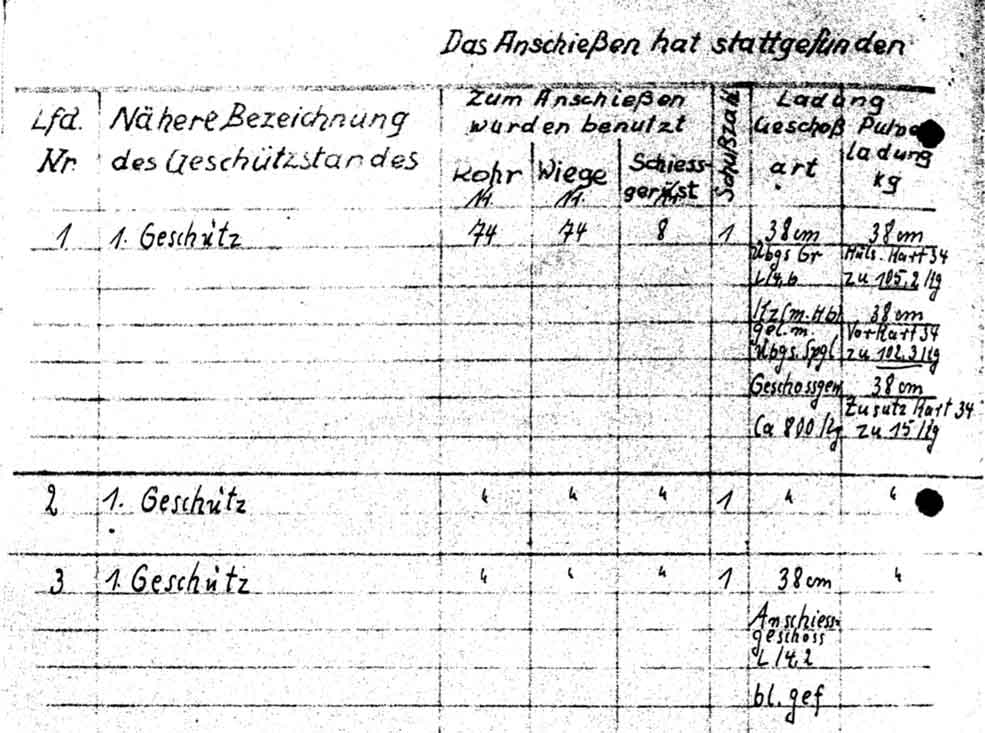 Das Anschießen hat stattgefunden
Lfd. Nr.
Nähere Bezeichnung
des Geschützstandes
Zum Anschießen
wurden benutzt
Rohr
Nr.
Wiege
Nr.
Schiess-
gerüst
Schußzahl
Ladung
Geschoß
art
ladung
kg
1 1. Geschütz 74 74 8 1 38 cm 38 cm
Übgs Gr Hüls. Kart 34
L/4,6 zu 105,2 Kg
38 cm
gel. m. Vor Kart 34
Übgs. Spgl zu 102,3 Kg
Geschossgew 38 cm
Zusatz Kart 34
Ca 800 Kg zu 15 Kg
2 1. Geschütz " " " 1 " "
3 1. Geschütz " " " 1 38 cm "
Anschiess-
geschoss
L/4,2
bl. gef